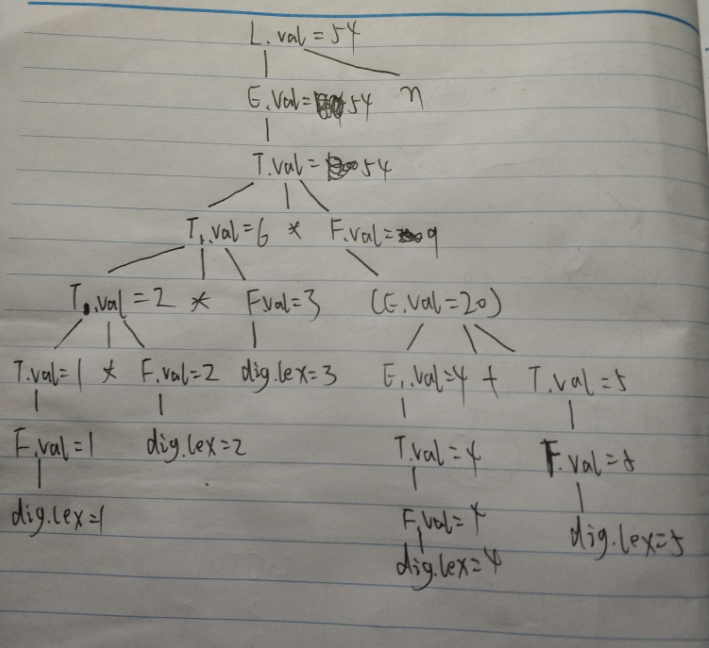 L.val=54
E.val=54 n
T.val=54
T₁.val=6 * F.val=9
T.val=2 * F.val=3 (E.val=20)
T.val=1 * F.val=2 dig.lex=3 E₁.val=4 + T.val=5
F.val=1 dig.lex=2 T.val=4 F.val=5
dig.lex=1 F.val=4 dig.lex=5
dig.lex=4